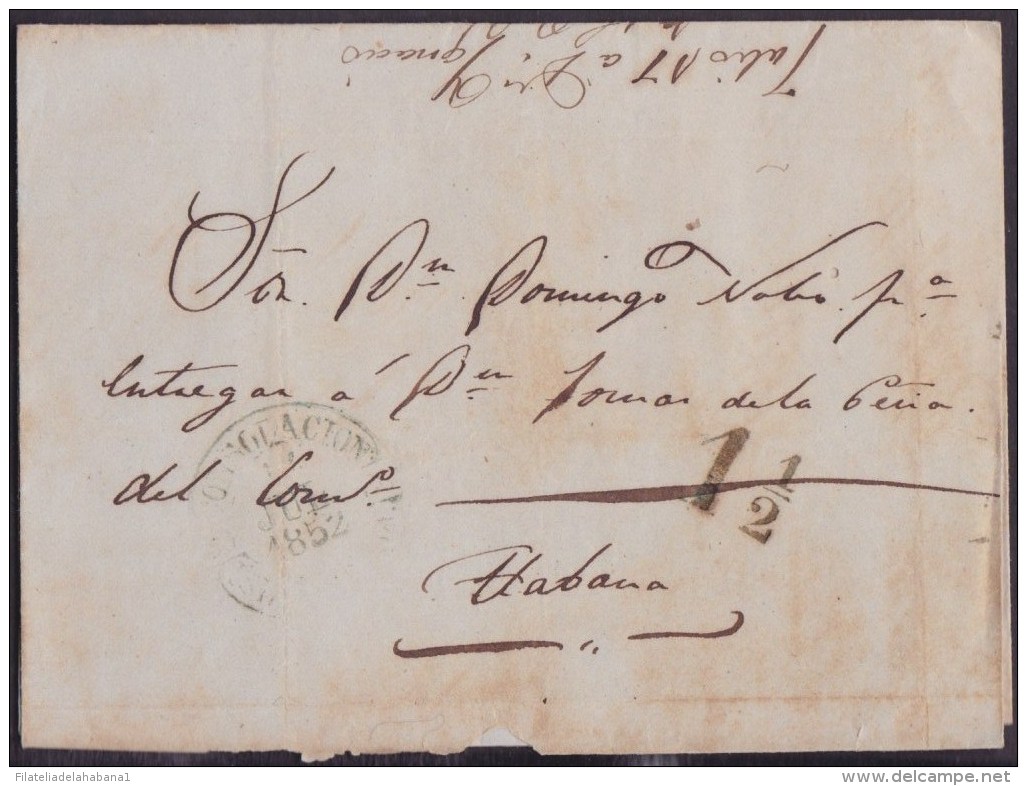 Julio 17 a Dn Ygnacio
Sor. Dn Domingo Nobo pa
entregar á Dn Tomas de la Peña.
del Comco.
1 1/2
JUL
1852
Habana
Filateliadelahabana1
www.delcampe.net